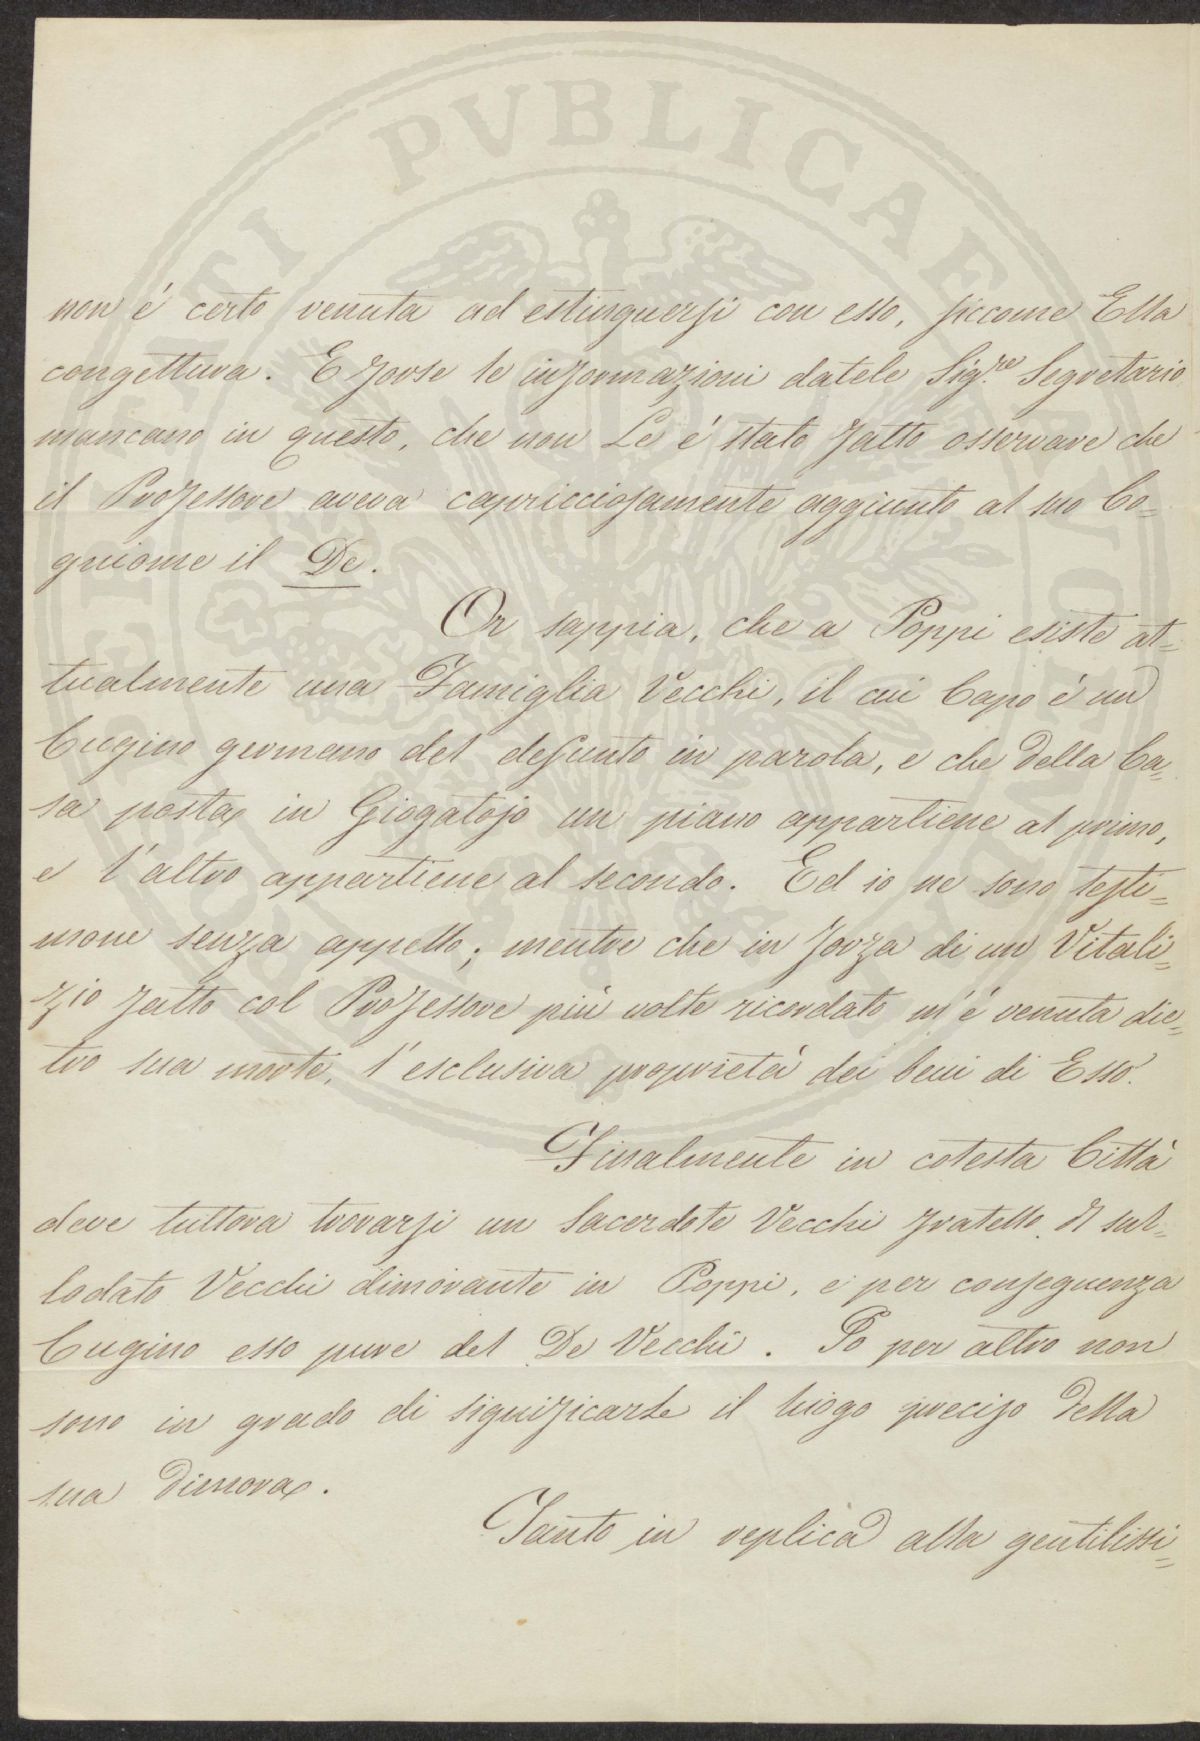 non é certo venuta ad estinguersi con esso, siccome Ella
congettura. E forse le informazioni datele Sig.re Segretario
mancano in questo, che non Le é stato fatto osservare che
il Professore aveva capricciosamente aggiunto al suo Co=
gniome il De.
Or sappia, che a Poppi esiste at=
tualmente una Famiglia Vecchi, il cui Capo é un
Cugino germano del defunto in parola, e che della Ca=
sa posta in Giogatojo un piano appartiene al primo,
e l'altro appartiene al secondo. Ed io ne sono testi=
mone senza appello; mentre che in forza di un Vitali=
zio fatto col Professore più volte ricordato m'é venuta die=
tro sua morte, l'esclusiva proprietà dei beni di Esso.
Finalmente in cotesta Città
deve tuttora trovarsi un Sacerdote Vecchi fratello. Il sul=
lodato Vecchi dimorante in Poppi, e per conseguenza
Cugino esso pure del De Vecchi. Io per altro non
sono in grado di significarLe il luogo preciso della
sua dimora.
Tanto in replica alla gentilissi=